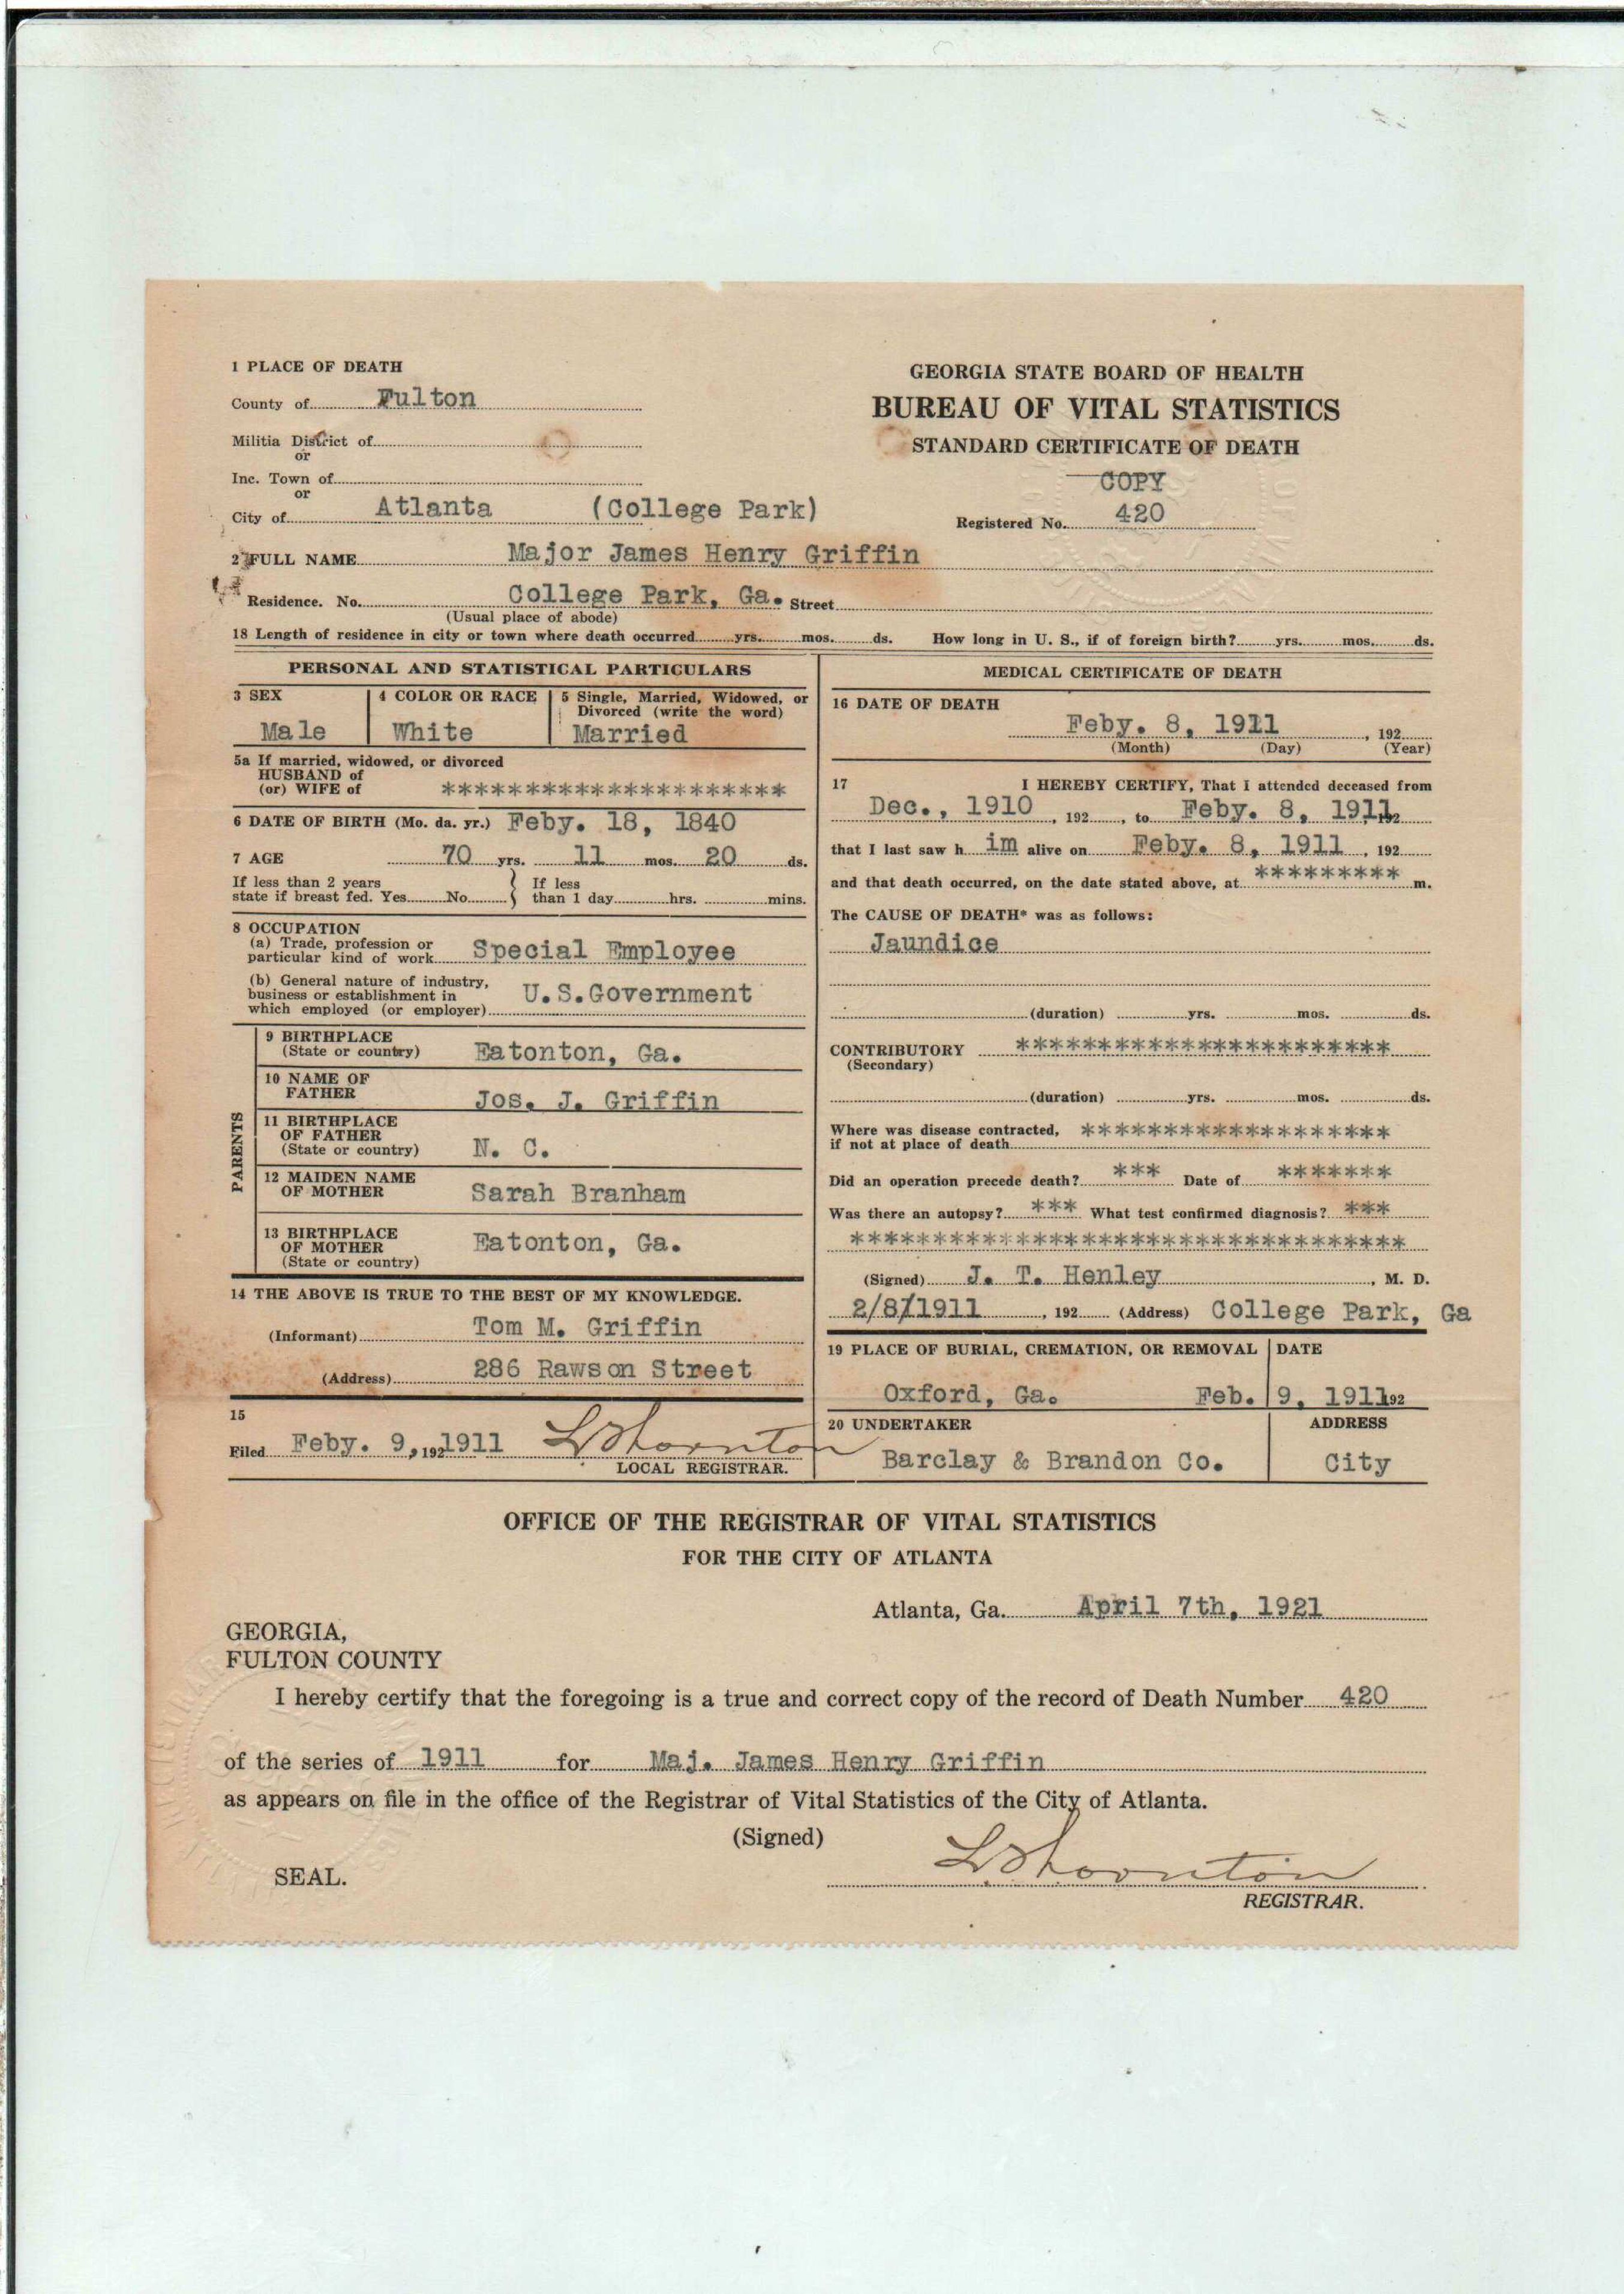 1 PLACE OF DEATH
County of Fulton
Militia District of
or
Inc. Town of
or
City of Atlanta (College Park)
GEORGIA STATE BOARD OF HEALTH
BUREAU OF VITAL STATISTICS
STANDARD CERTIFICATE OF DEATH
COPY
Registered No. 420
2 FULL NAME Major James Henry Griffin
Residence. No. College Park, Ga. Street
(Usual place of abode)
18 Length of residence in city or town where death occurred yrs. mos. ds. How long in U. S., if of foreign birth? yrs. mos. ds.
PERSONAL AND STATISTICAL PARTICULARS
3 SEX 4 COLOR OR RACE 5 Single, Married, Widowed, or
Divorced (write the word)
Male White Married
5a If married, widowed, or divorced
HUSBAND of
(or) WIFE of *********************
6 DATE OF BIRTH (Mo. da. yr.) Feby. 18, 1840
7 AGE 70 yrs. 11 mos. 20 ds.
If less than 2 years If less
state if breast fed. Yes No than 1 day hrs. mins.
8 OCCUPATION
(a) Trade, profession or
particular kind of work Special Employee
(b) General nature of industry,
business or establishment in
which employed (or employer) U.S.Government
PARENTS
9 BIRTHPLACE
(State or country) Eatonton, Ga.
10 NAME OF
FATHER Jos. J. Griffin
11 BIRTHPLACE
OF FATHER
(State or country) N. C.
12 MAIDEN NAME
OF MOTHER Sarah Branham
13 BIRTHPLACE
OF MOTHER
(State or country) Eatonton, Ga.
14 THE ABOVE IS TRUE TO THE BEST OF MY KNOWLEDGE.
(Informant) Tom M. Griffin
(Address) 286 Rawson Street
15
Filed Feby. 9, 192 1911 L Thornton
LOCAL REGISTRAR.
MEDICAL CERTIFICATE OF DEATH
16 DATE OF DEATH
Feby. 8, 1911, 192
(Month) (Day) (Year)
17 I HEREBY CERTIFY, That I attended deceased from
Dec., 1910, 192, to Feby. 8, 1911, 192
that I last saw h im alive on Feby. 8, 1911, 192
and that death occurred, on the date stated above, at ********* m.
The CAUSE OF DEATH* was as follows:
Jaundice
(duration) yrs. mos. ds.
CONTRIBUTORY ***********************
(Secondary)
(duration) yrs. mos. ds.
Where was disease contracted, *******************
if not at place of death
Did an operation precede death? *** Date of *******
Was there an autopsy? *** What test confirmed diagnosis? ***
**********************************
(Signed) J. T. Henley, M. D.
2/8/1911, 192 (Address) College Park, Ga
19 PLACE OF BURIAL, CREMATION, OR REMOVAL DATE
Oxford, Ga. Feb. 9, 1911 192
20 UNDERTAKER ADDRESS
Barclay & Brandon Co. City
OFFICE OF THE REGISTRAR OF VITAL STATISTICS
FOR THE CITY OF ATLANTA
Atlanta, Ga. April 7th, 1921
GEORGIA,
FULTON COUNTY
I hereby certify that the foregoing is a true and correct copy of the record of Death Number 420
of the series of 1911 for Maj. James Henry Griffin
as appears on file in the office of the Registrar of Vital Statistics of the City of Atlanta.
(Signed)
SEAL. L Thornton
REGISTRAR.